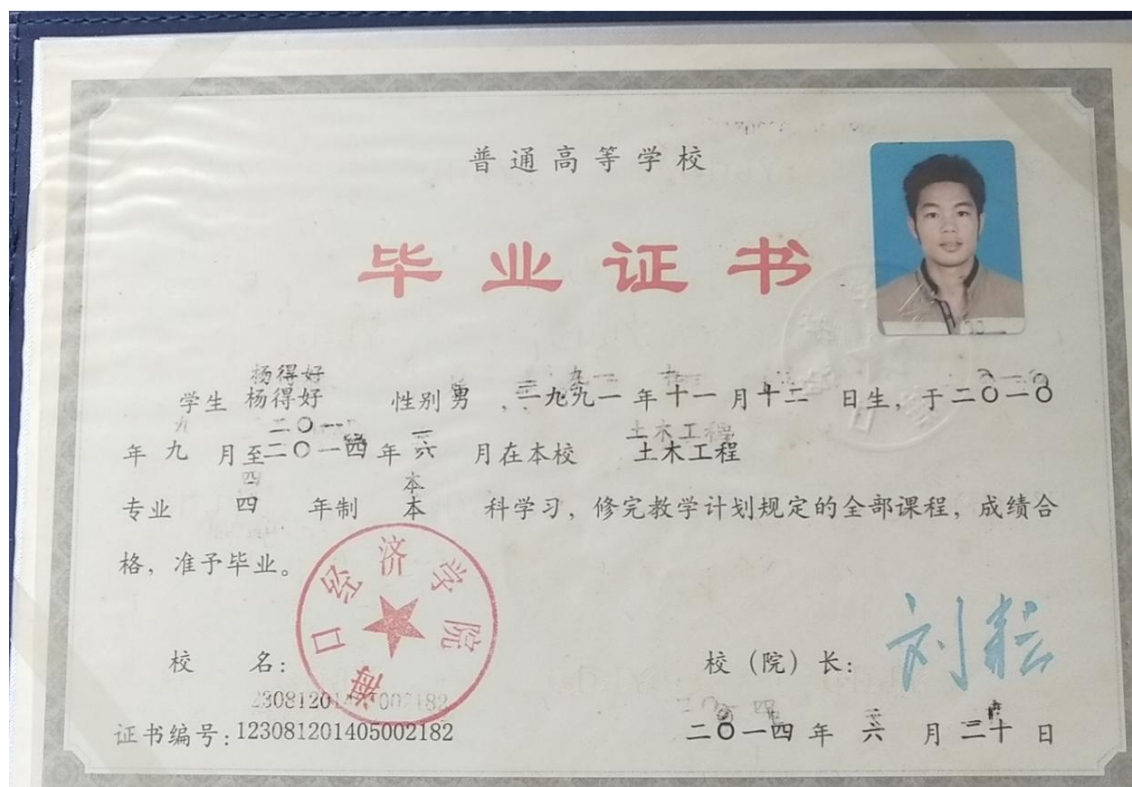 普通高等学校
毕业证书
学生 杨得好 性别 男 ,一九九一 年 十一 月 十二 日生, 于 二〇一〇
年 九 月至 二〇一四 年 六 月在本校 土木工程
专业 四 年制 本 科学习, 修完教学计划规定的全部课程, 成绩合
格, 准予毕业。
海口经济学院
校 名: 校 (院) 长: 刘耘
证书编号: 123081201405002182 二〇一四 年 六 月 二十 日